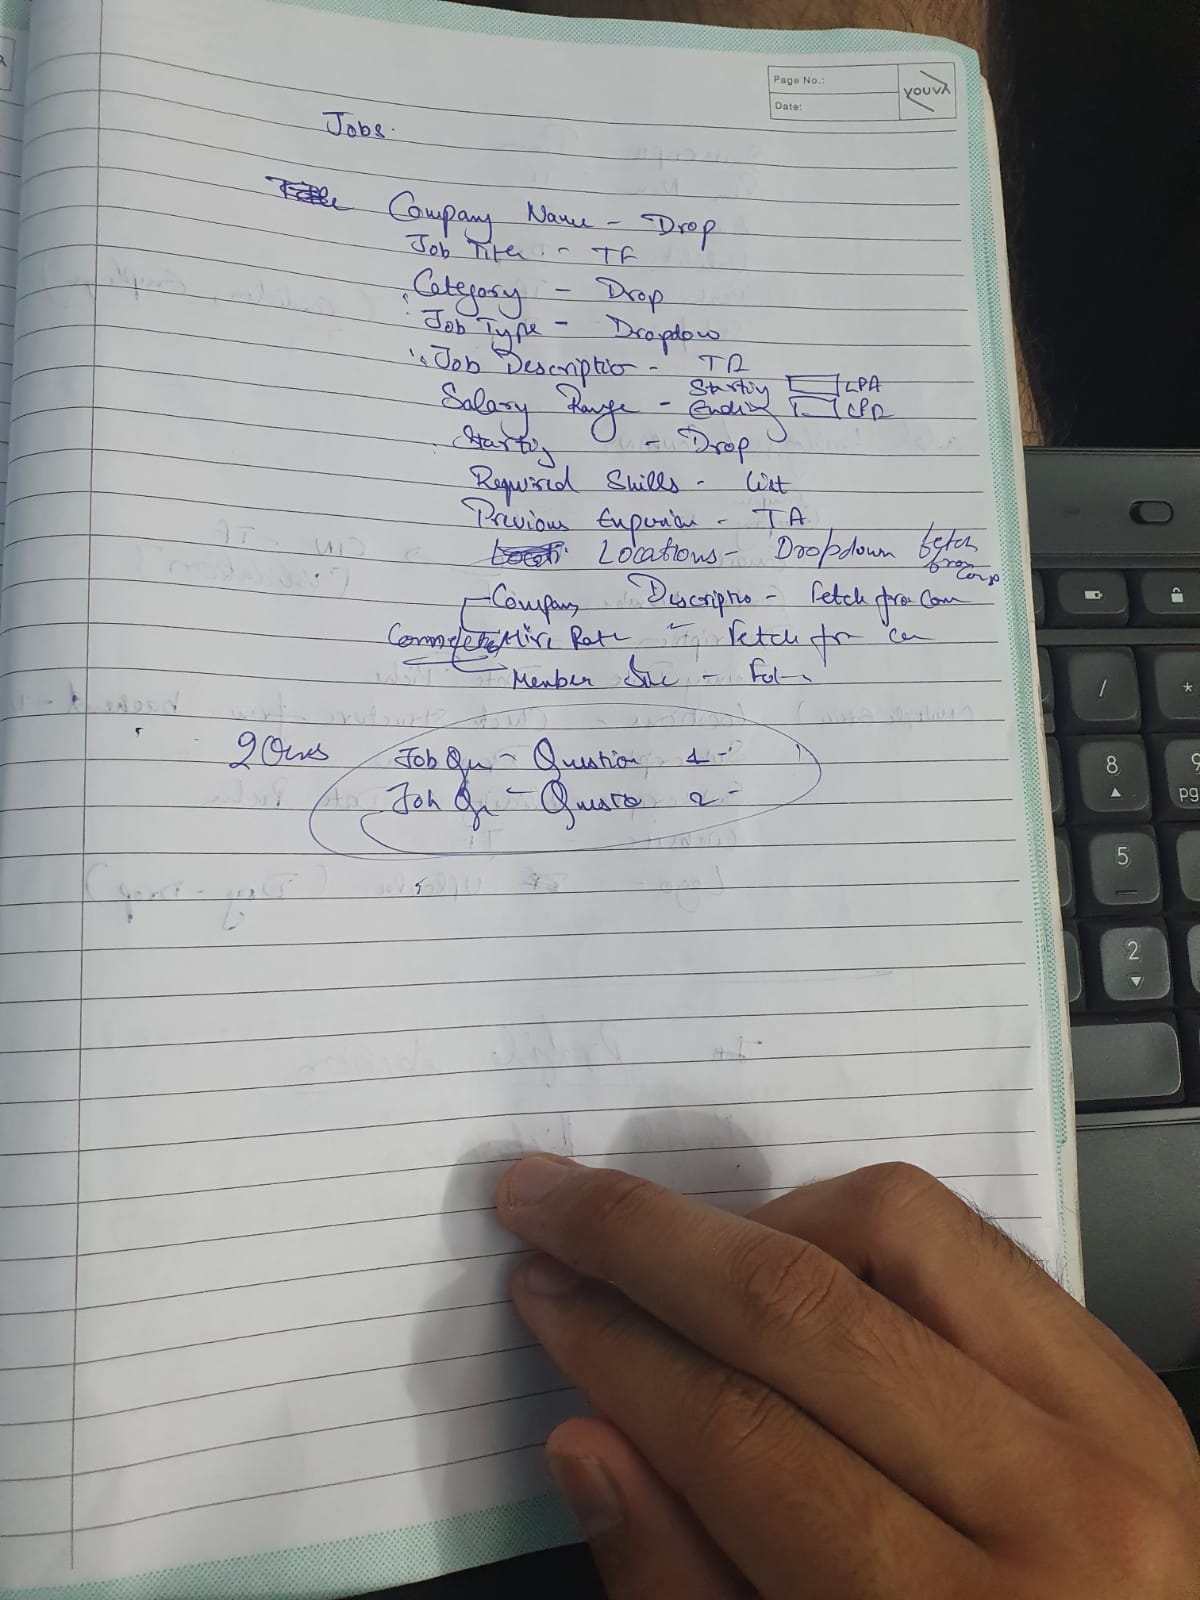 Page No.:
Date:
YOUVA
Jobs.
Company Name - Drop
Job Titer - TF
Category - Drop
Job Type - Dropdow
Job Descriptio - TA
Salary Range - Startig LPA
Ending LPA
Startig - Drop
Required Skills - List
Previous - TA
Locations - Dropdown fetch
from Comp
Company Descriptio - Fetch from Com
Hire Rate - Fetch for
Member -
2 Ques Job Qu - Question 1 -
Job Qu - Questo 2 -
/
*
8
9
pg
5
2